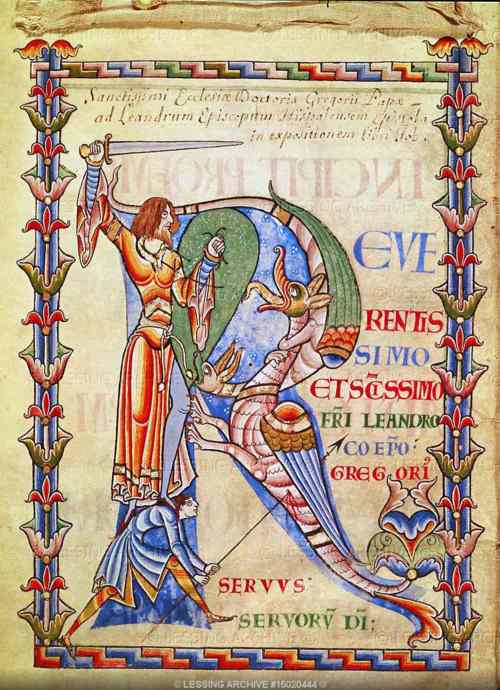 Sanctissimi Ecclesiæ Doctoris Gregorii Papæ
ad Leandrum Episcopum Hispalensem Epistola
in expositionem libri Job.
REVE
RENTIS
SIMO
ET SC̄ISSIMO
FR̄I LEANDRO
COEP̄O:
GREGORI᾽
SERVVS:
SERVORV̄ DĪ:
© LESSING ARCHIVE #15020444 ©